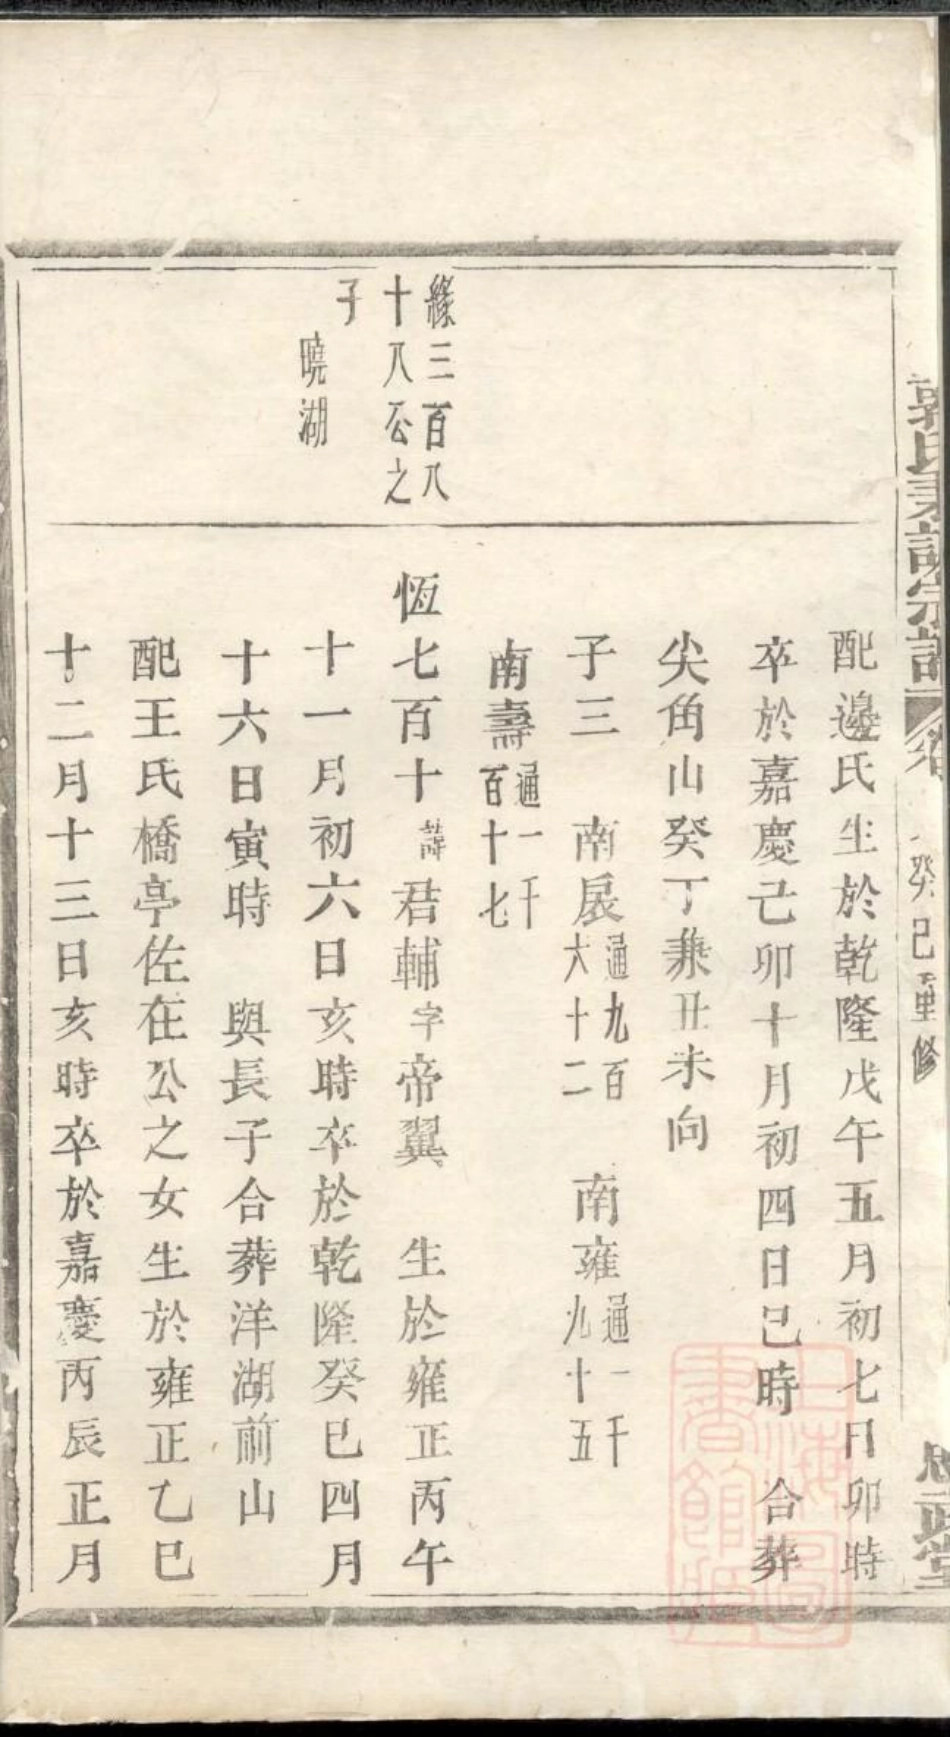 癸巳重修
配邊氏生於乾隆戊午五月初七日卯時
卒於嘉慶己卯十月初四日巳時 合葬
尖角山癸丁兼丑未向
子三 南扆通九百六十二 南雍通一千九十五
南壽通一千百十七
緣三百八
十八公之
子
曉湖
恆七百十 諱君輔字帝翼 生於雍正丙午
十一月初六日亥時卒於乾隆癸巳四月
十六日寅時 與長子合葬洋湖前山
配王氏橋亭佐在公之女生於雍正乙巳
十二月十三日亥時卒於嘉慶丙辰正月
上海圖書館藏